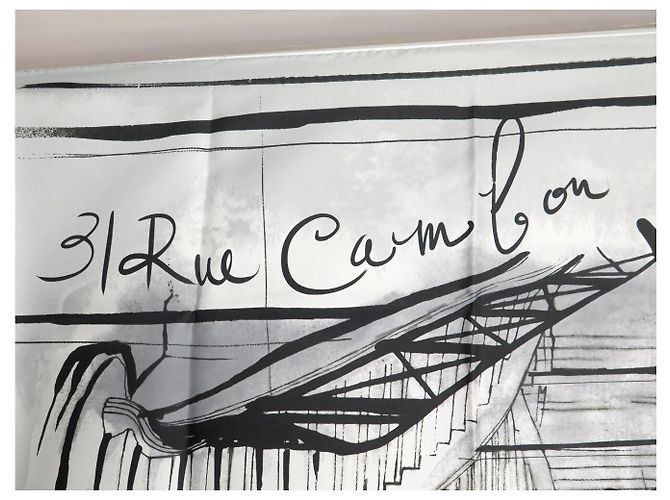 31 Rue Cambon